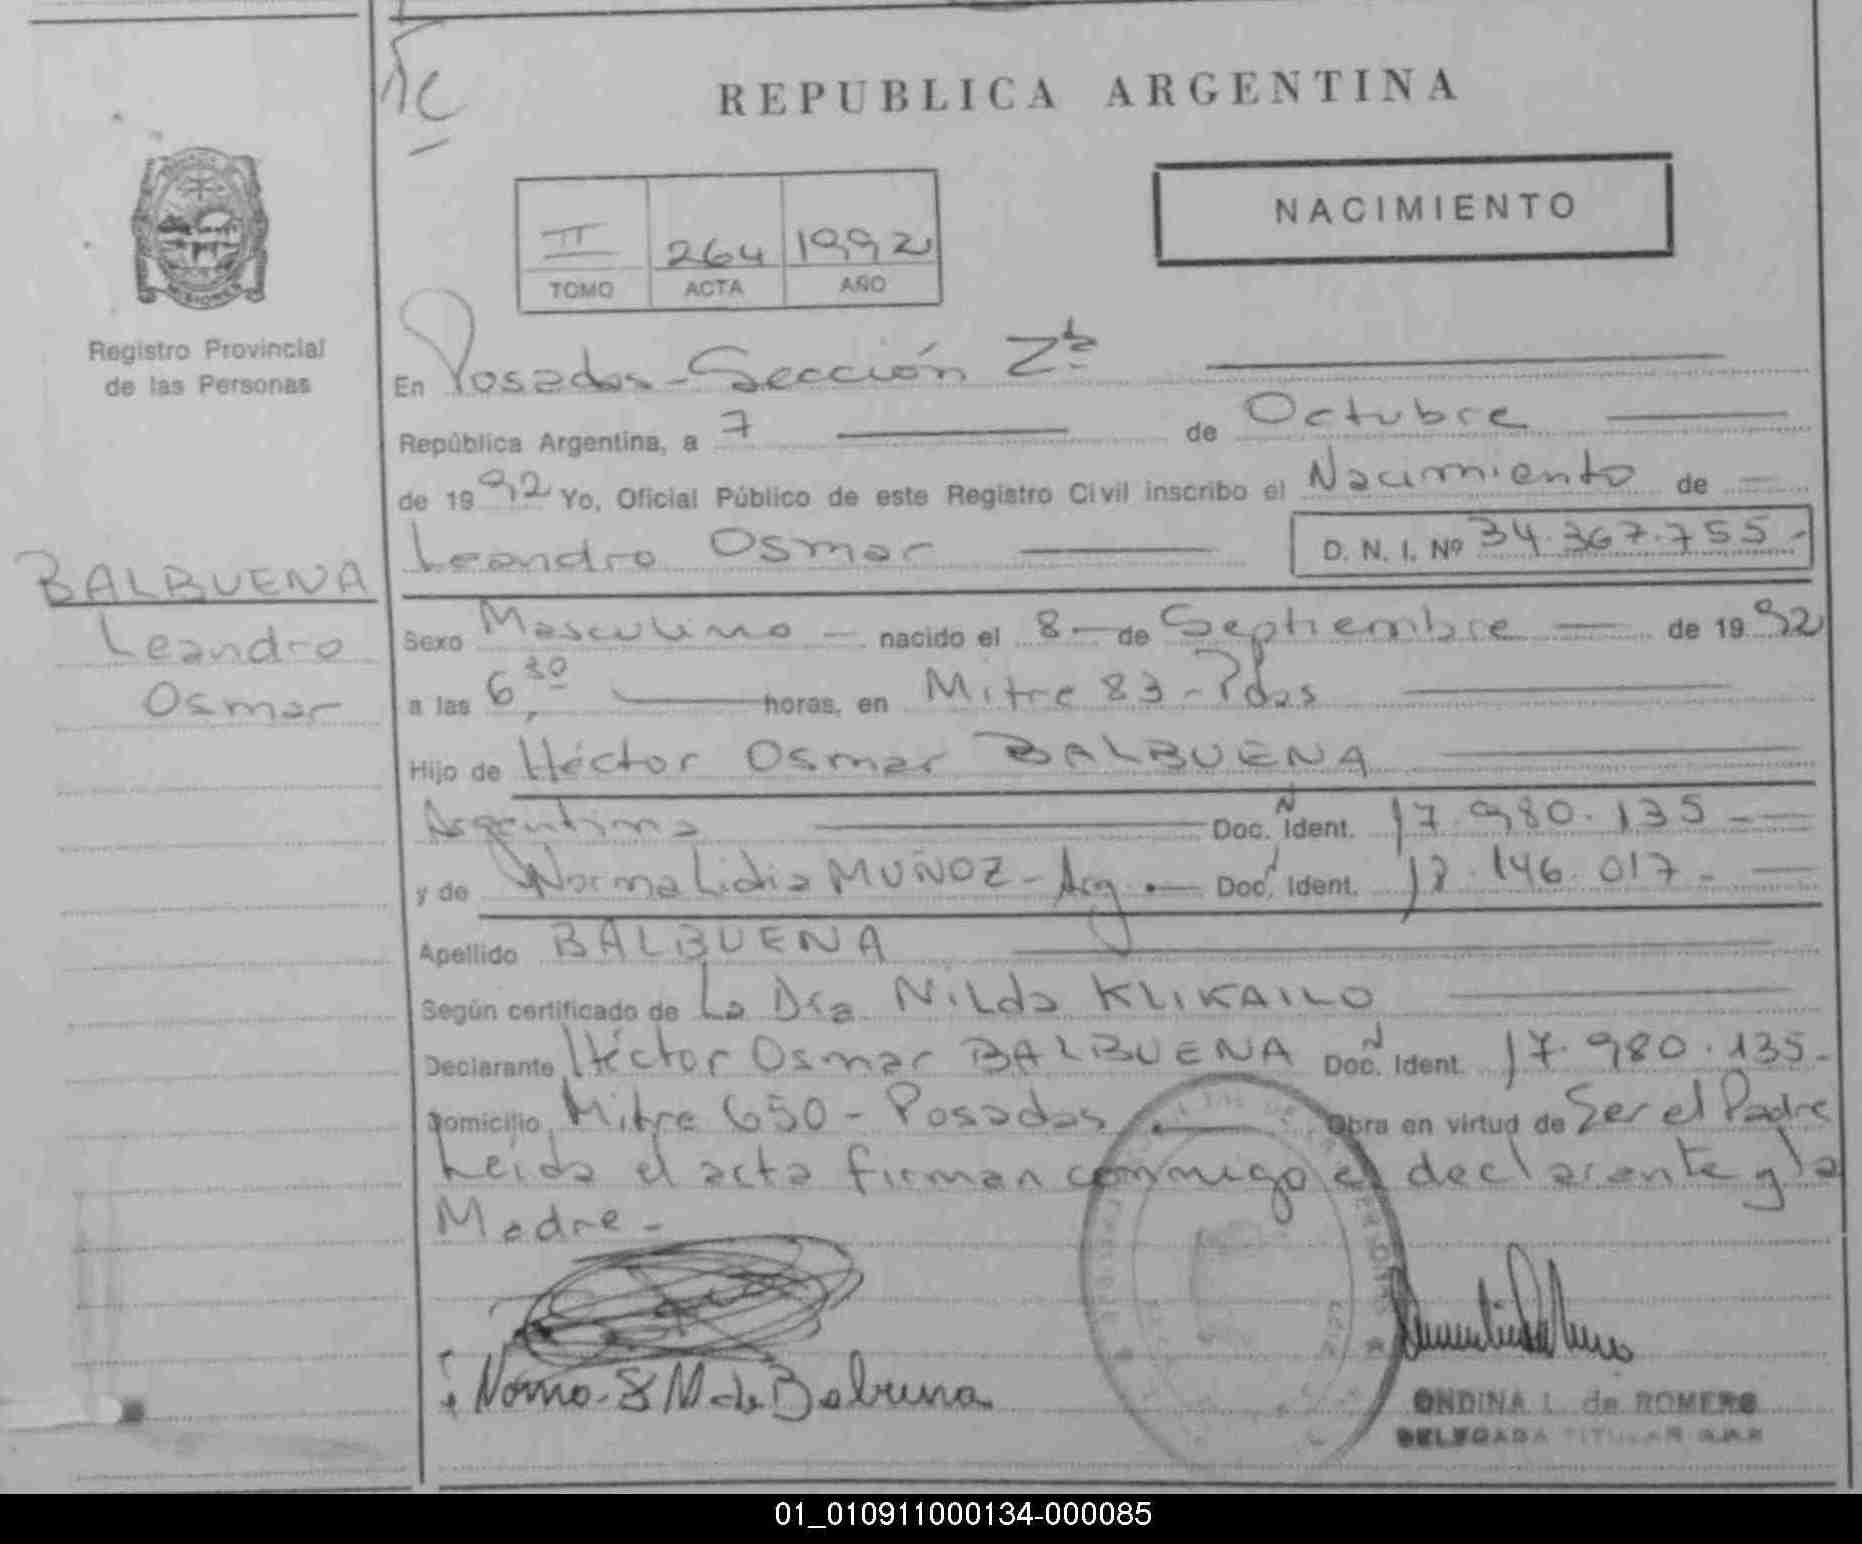 REPUBLICA ARGENTINA
NACIMIENTO
II 264 1992
TOMO ACTA AÑO
MISIONES
Registro Provincial
de las Personas
En Posadas - Sección 2ª
República Argentina, a 7 de Octubre
de 1992 Yo, Oficial Público de este Registro Civil inscribo el Nacimiento de
Leandro Osmar D. N. I. Nº 34.367.755.-
BALBUENA
Leandro
Osmar
Sexo Masculino nacido el 8 de Septiembre de 1992
a las 6,30 horas, en Mitre 83 - Pdas
Hijo de Héctor Osmar BALBUENA
Argentino Doc. Ident. 17.980.135 -
y de Norma Lidia MUÑOZ - Arg. Doc. Ident. 18.146.017 -
Apellido BALBUENA
Según certificado de La Dra Nilda KLIKAILO
Declarante Héctor Osmar BALBUENA Doc. Ident. 17.980.135 -
Domicilio Mitre 650 - Posadas Obra en virtud de Ser el Padre
Leida el acta firman conmigo el declarante y la
Madre -
ONDINA L. de ROMERO
DELEGADA TITULAR
01_010911000134-000085